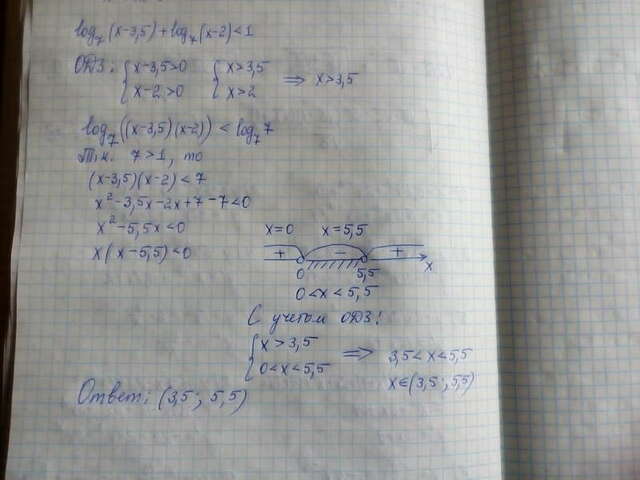 log₇(x-3,5)+log₇(x-2)<1
ОДЗ: { x-3,5>0 { x>3,5 ⇒ x>3,5
x-2>0 x>2
log₇((x-3,5)(x-2)) < log₇7
Т.к. 7>1, то
(x-3,5)(x-2)<7
x²-3,5x-2x+7-7<0
x²-5,5x<0
x(x-5,5)<0
x=0 x=5,5
+ - +
0 5,5 x
0<x<5,5
С учетом ОДЗ:
{ x>3,5 ⇒ 3,5<x<5,5
0<x<5,5 x∈(3,5; 5,5)
Ответ: (3,5; 5,5)